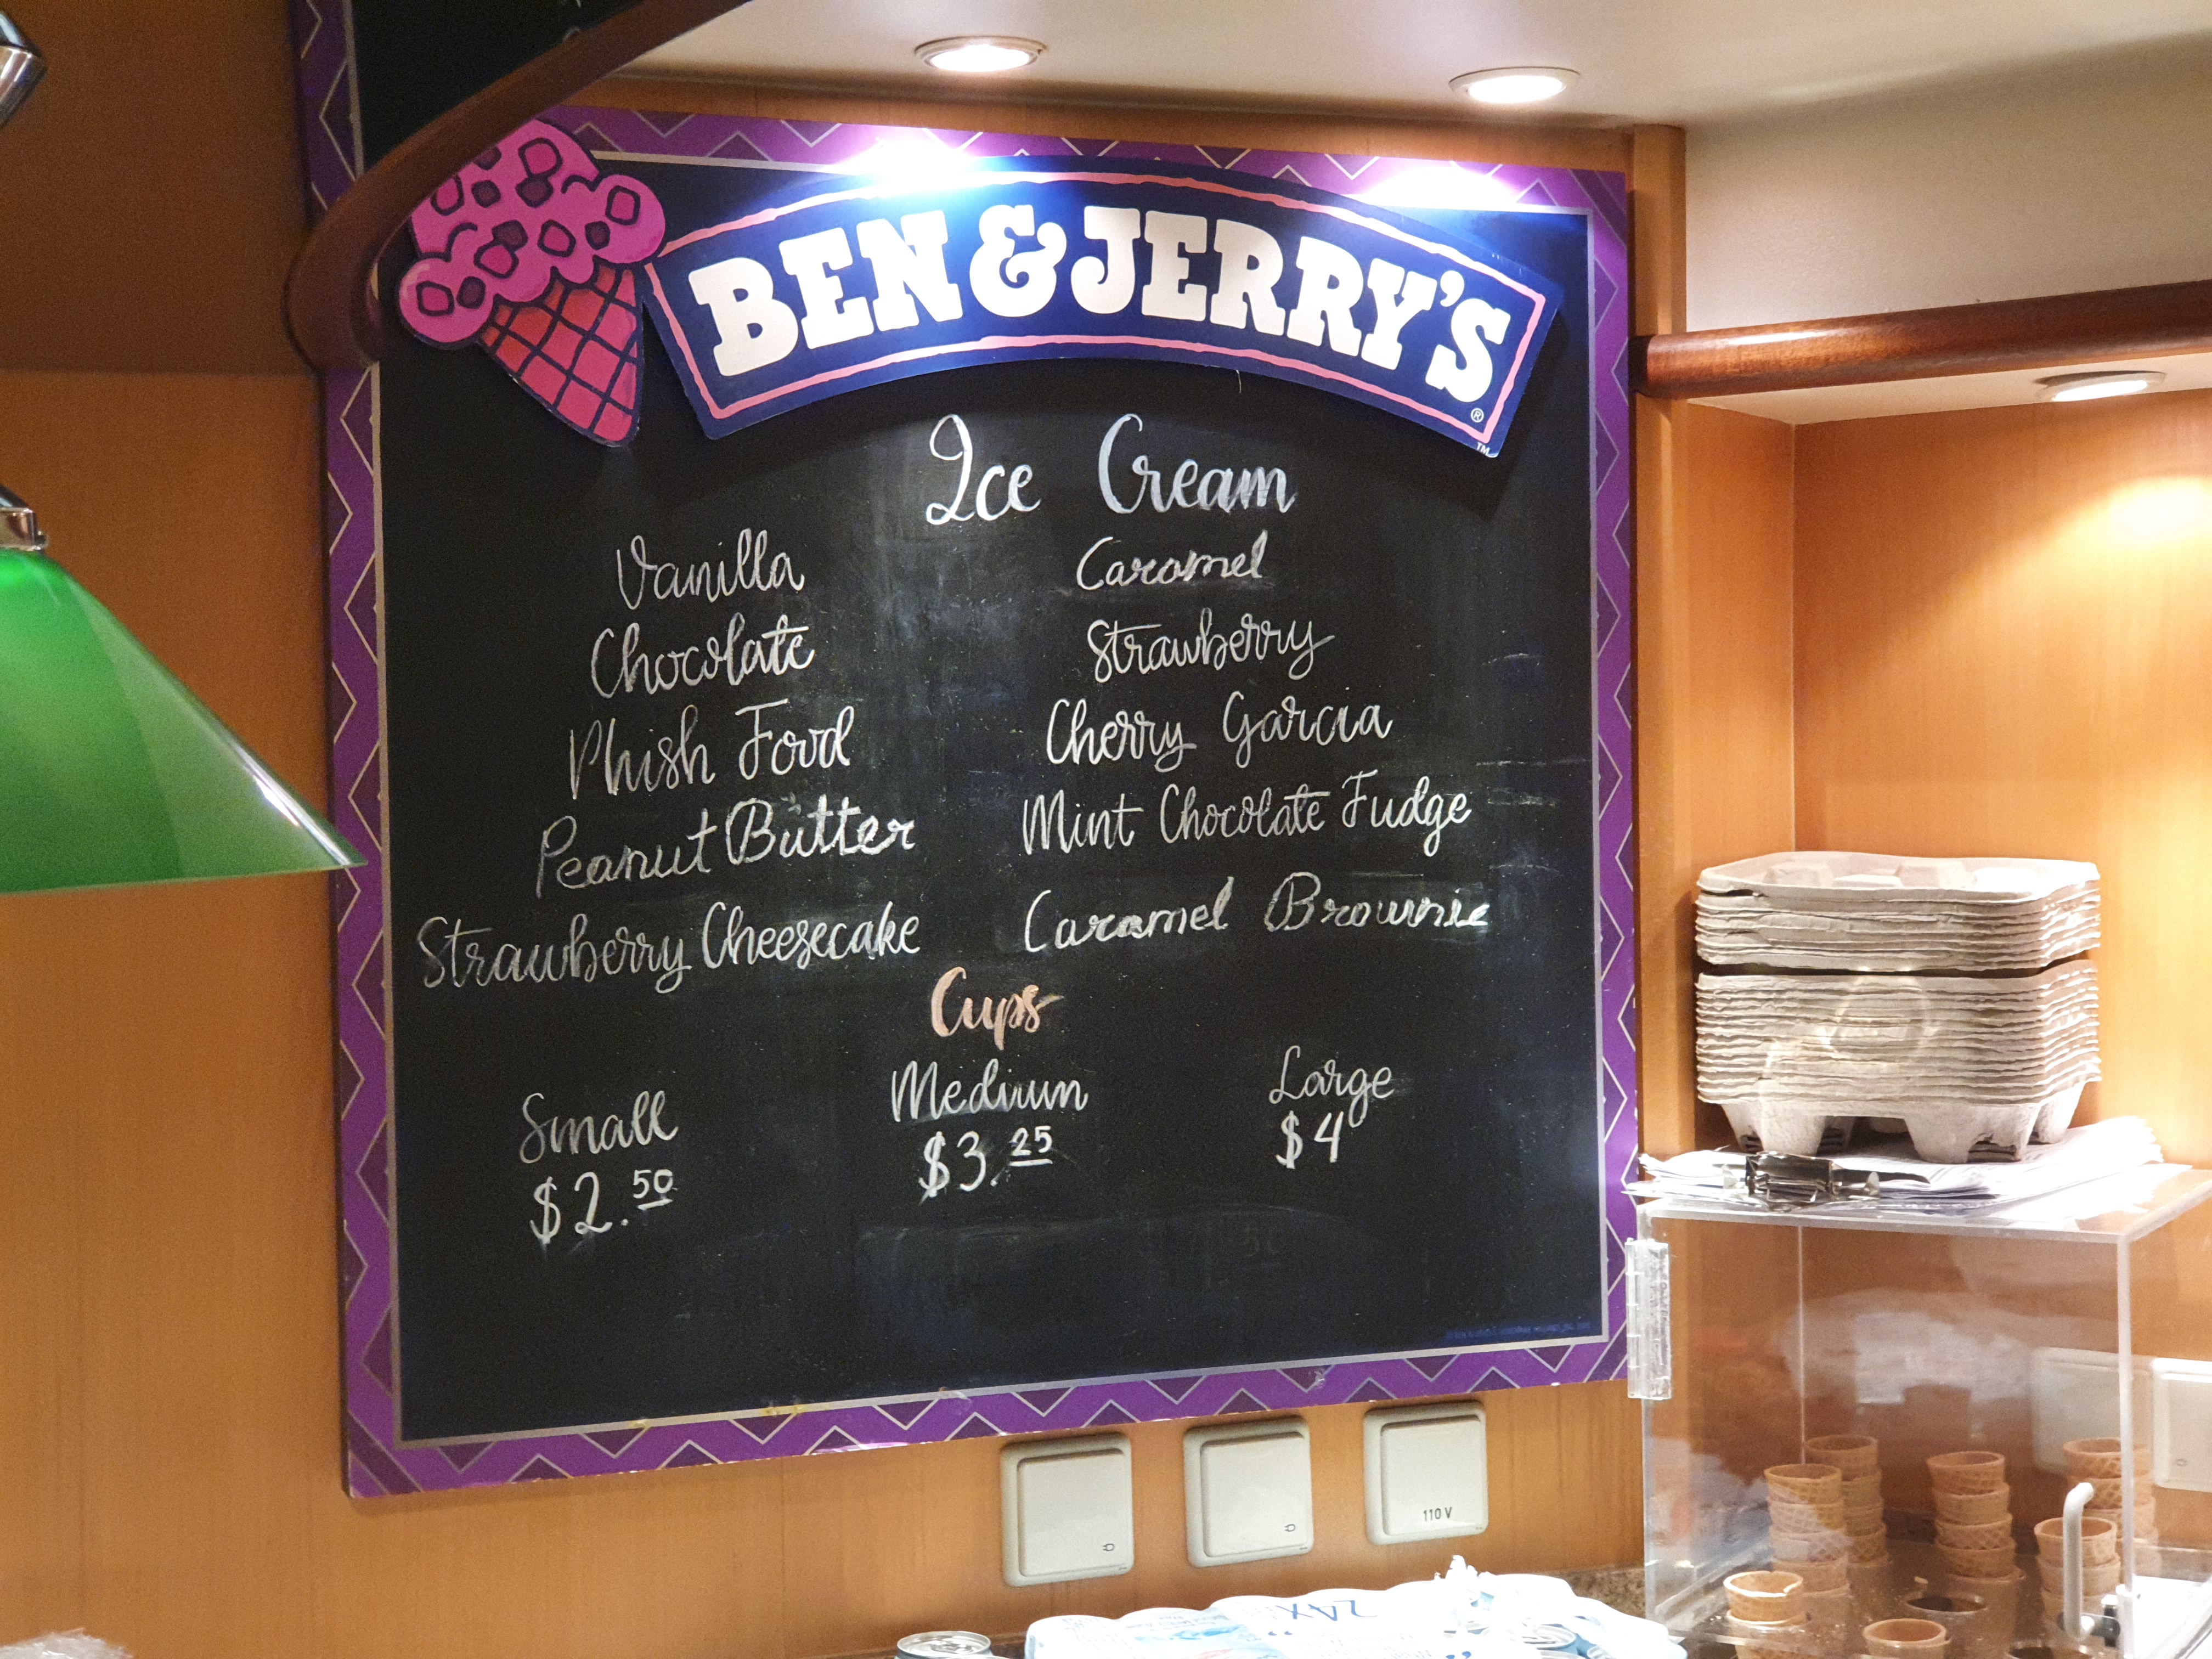 BEN & JERRY'S
®
TM
Ice Cream
Vanilla Caramel
Chocolate Strawberry
Phish Food Cherry Garcia
Peanut Butter Mint Chocolate Fudge
Strawberry Cheesecake Caramel Brownie
Cups
Small Medium Large
$2.50 $3.25 $4
110 V